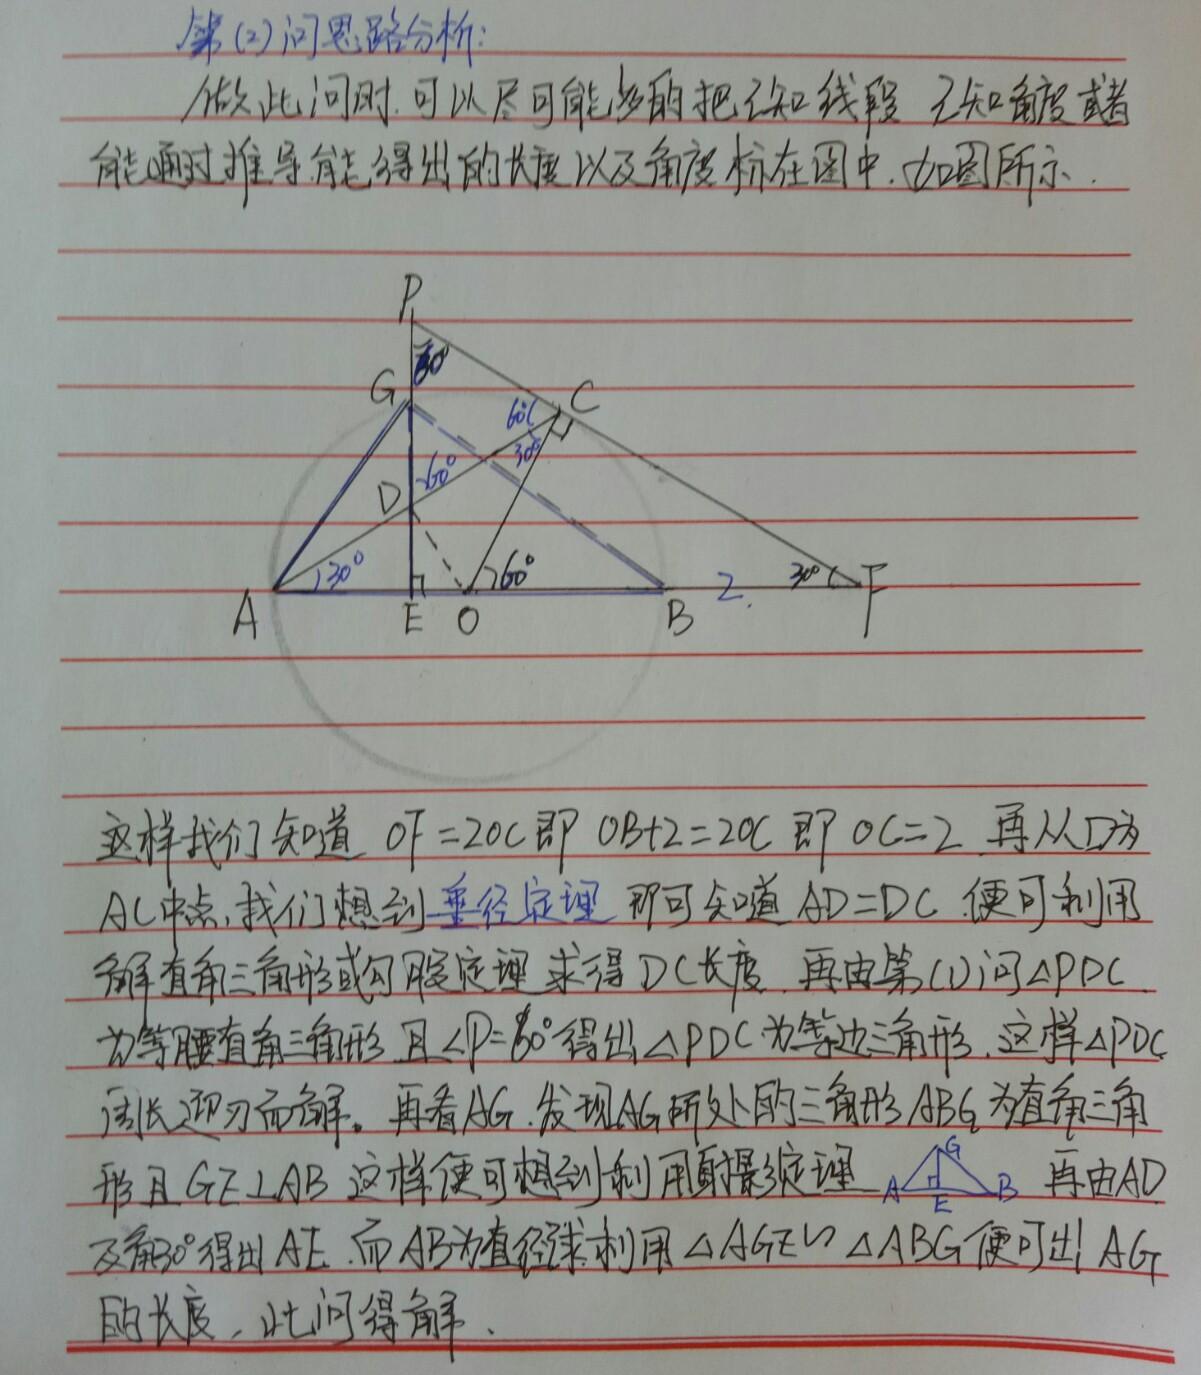 第(2)问思路分析:
做此问时.可以尽可能多的把已知线段 已知角度或者
能通过推导.能得出的长度以及角度标在图中.如图所示.
P
60°
G
60°
C
30°
60°
D
30°
60°
30°
A
E
O
B
2.
F
这样我们知道 OF=2OC即 OB+2=2OC 即 OC=2 再从D为
AC中点,我们想到垂径定理 即可知道AD=DC.便可利用
解直角三角形或勾股定理求得DC长度.再由第(1)问△PDC
为等腰直角三角形 且∠P=60°得出△PDC为等边三角形.这样△PDC
周长迎刃而解。再看AG.发现AG所处的三角形ABG为直角三角
形且GE⊥AB 这样便可想到利用射影定理 A G E B 再由AD
及角30°得出AE.而AB为直径 利用△AGE∽△ABG便可出AG
的长度.此问得解.